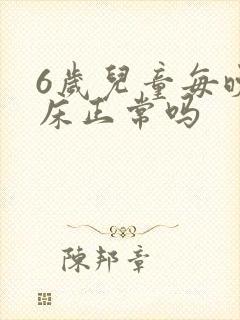 6歲兒童每晚
床正常吗
陳邦章